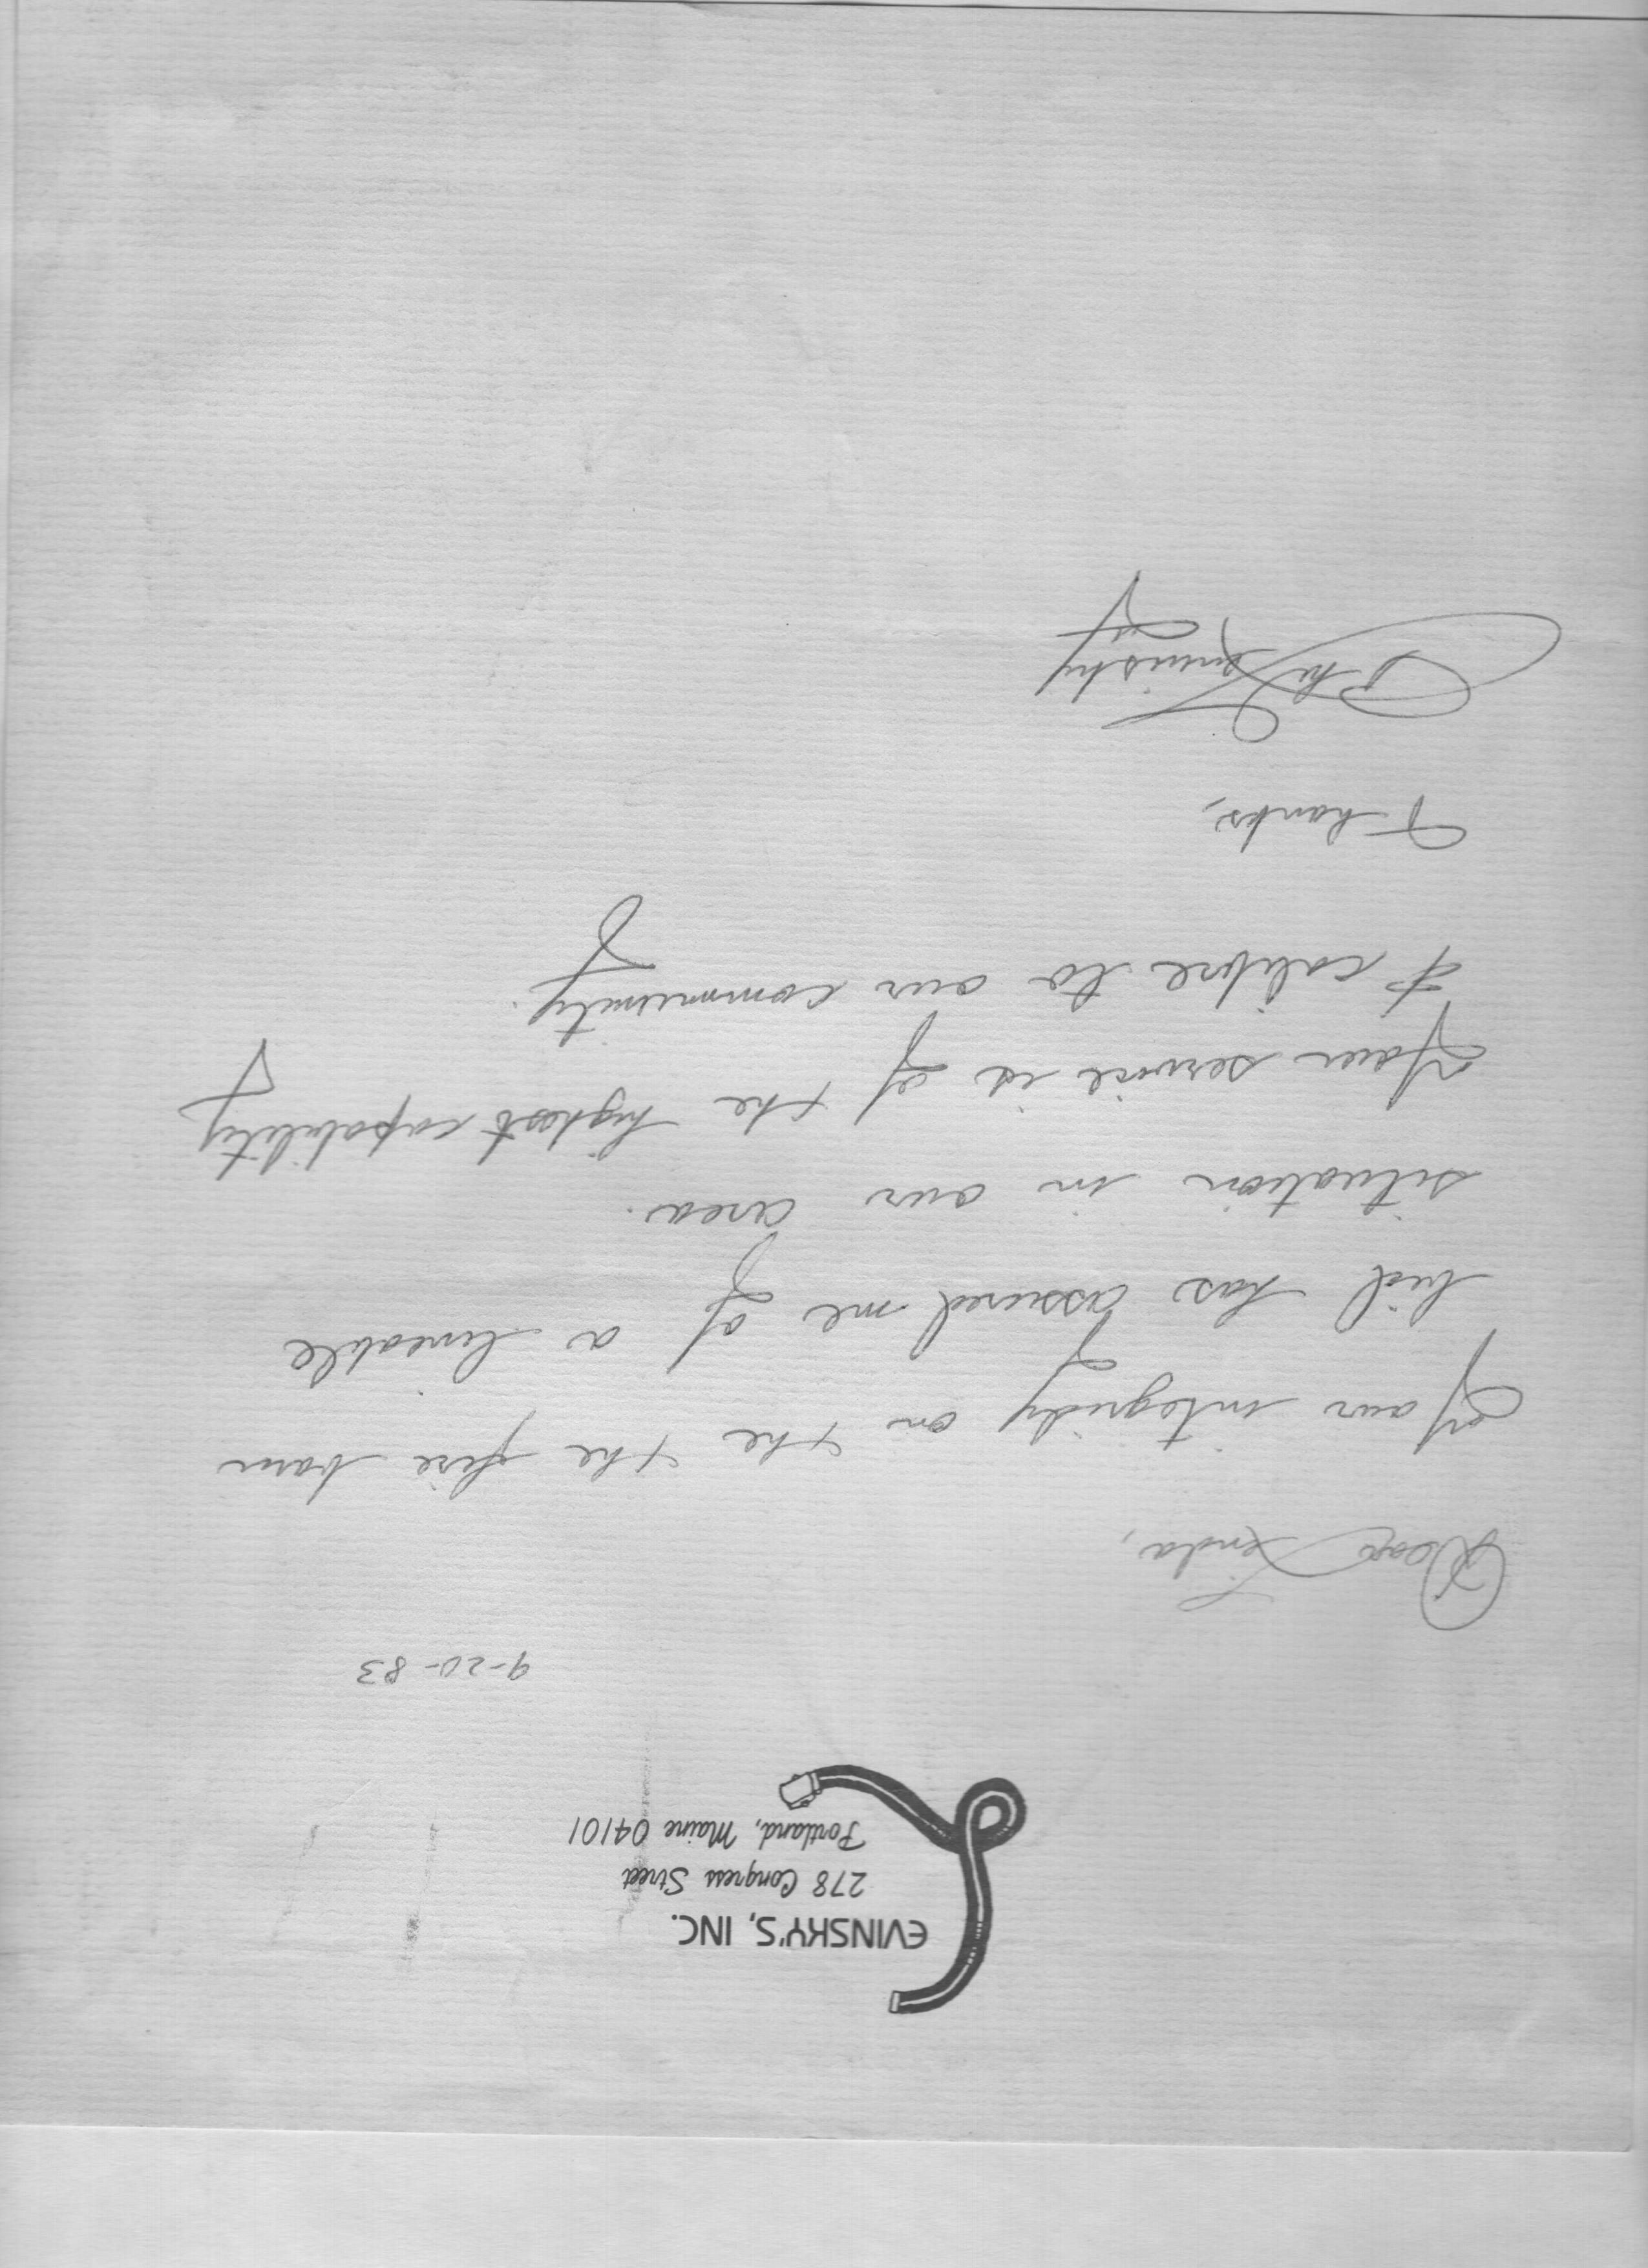 LEVINSKY'S, INC.
278 Congress Street
Portland, Maine 04101
9-20-83
Dear Linda,
Your integrity on the the fire barn
bid has assured me of a liveable
situation in our area.
Your service is of the highest capability
& calibre to our community.
Thanks,
Phil Levinsky